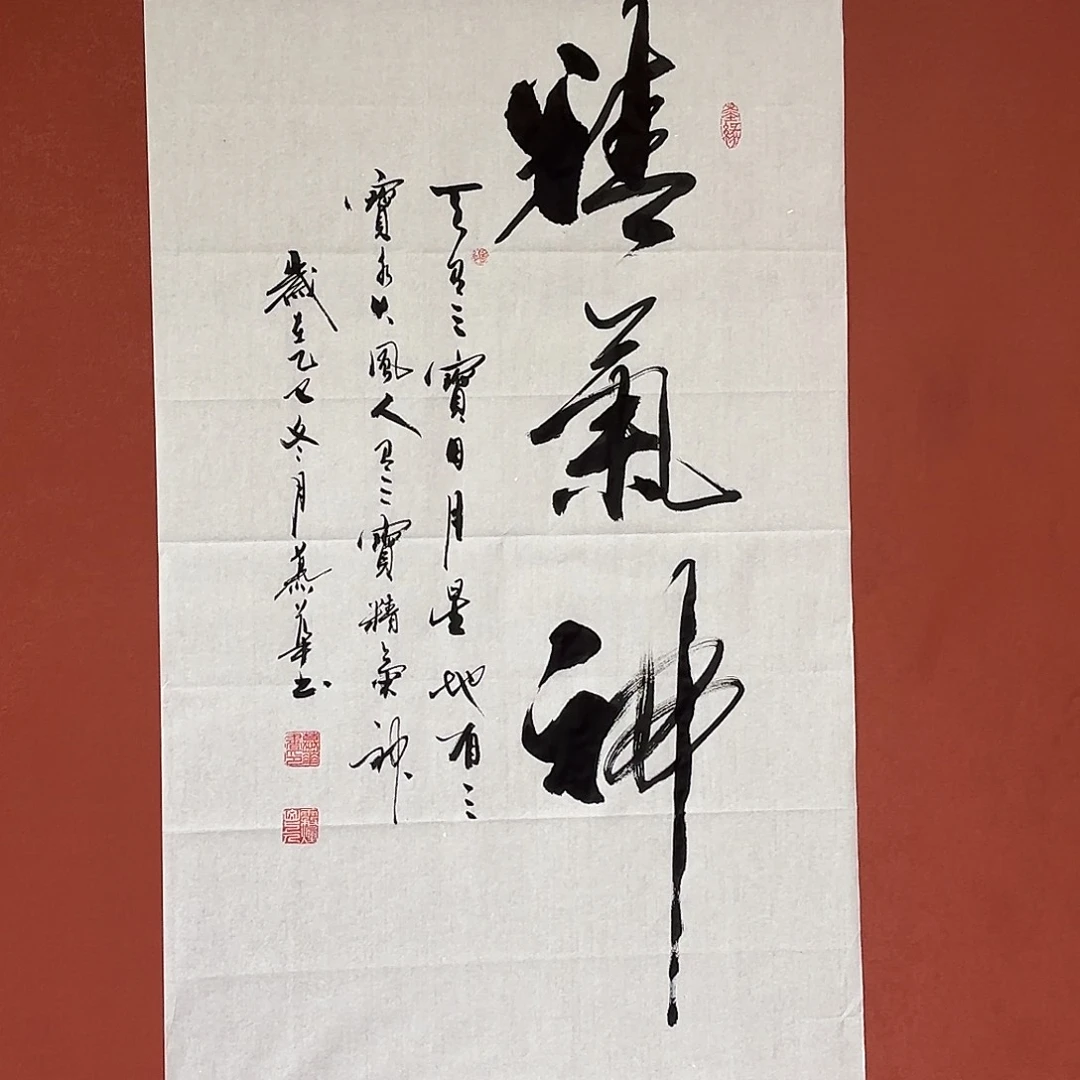 精氣神
天有三寶日月星地有三
寶水火風人有三寶精氣神
歲在乙巳冬月慕華书